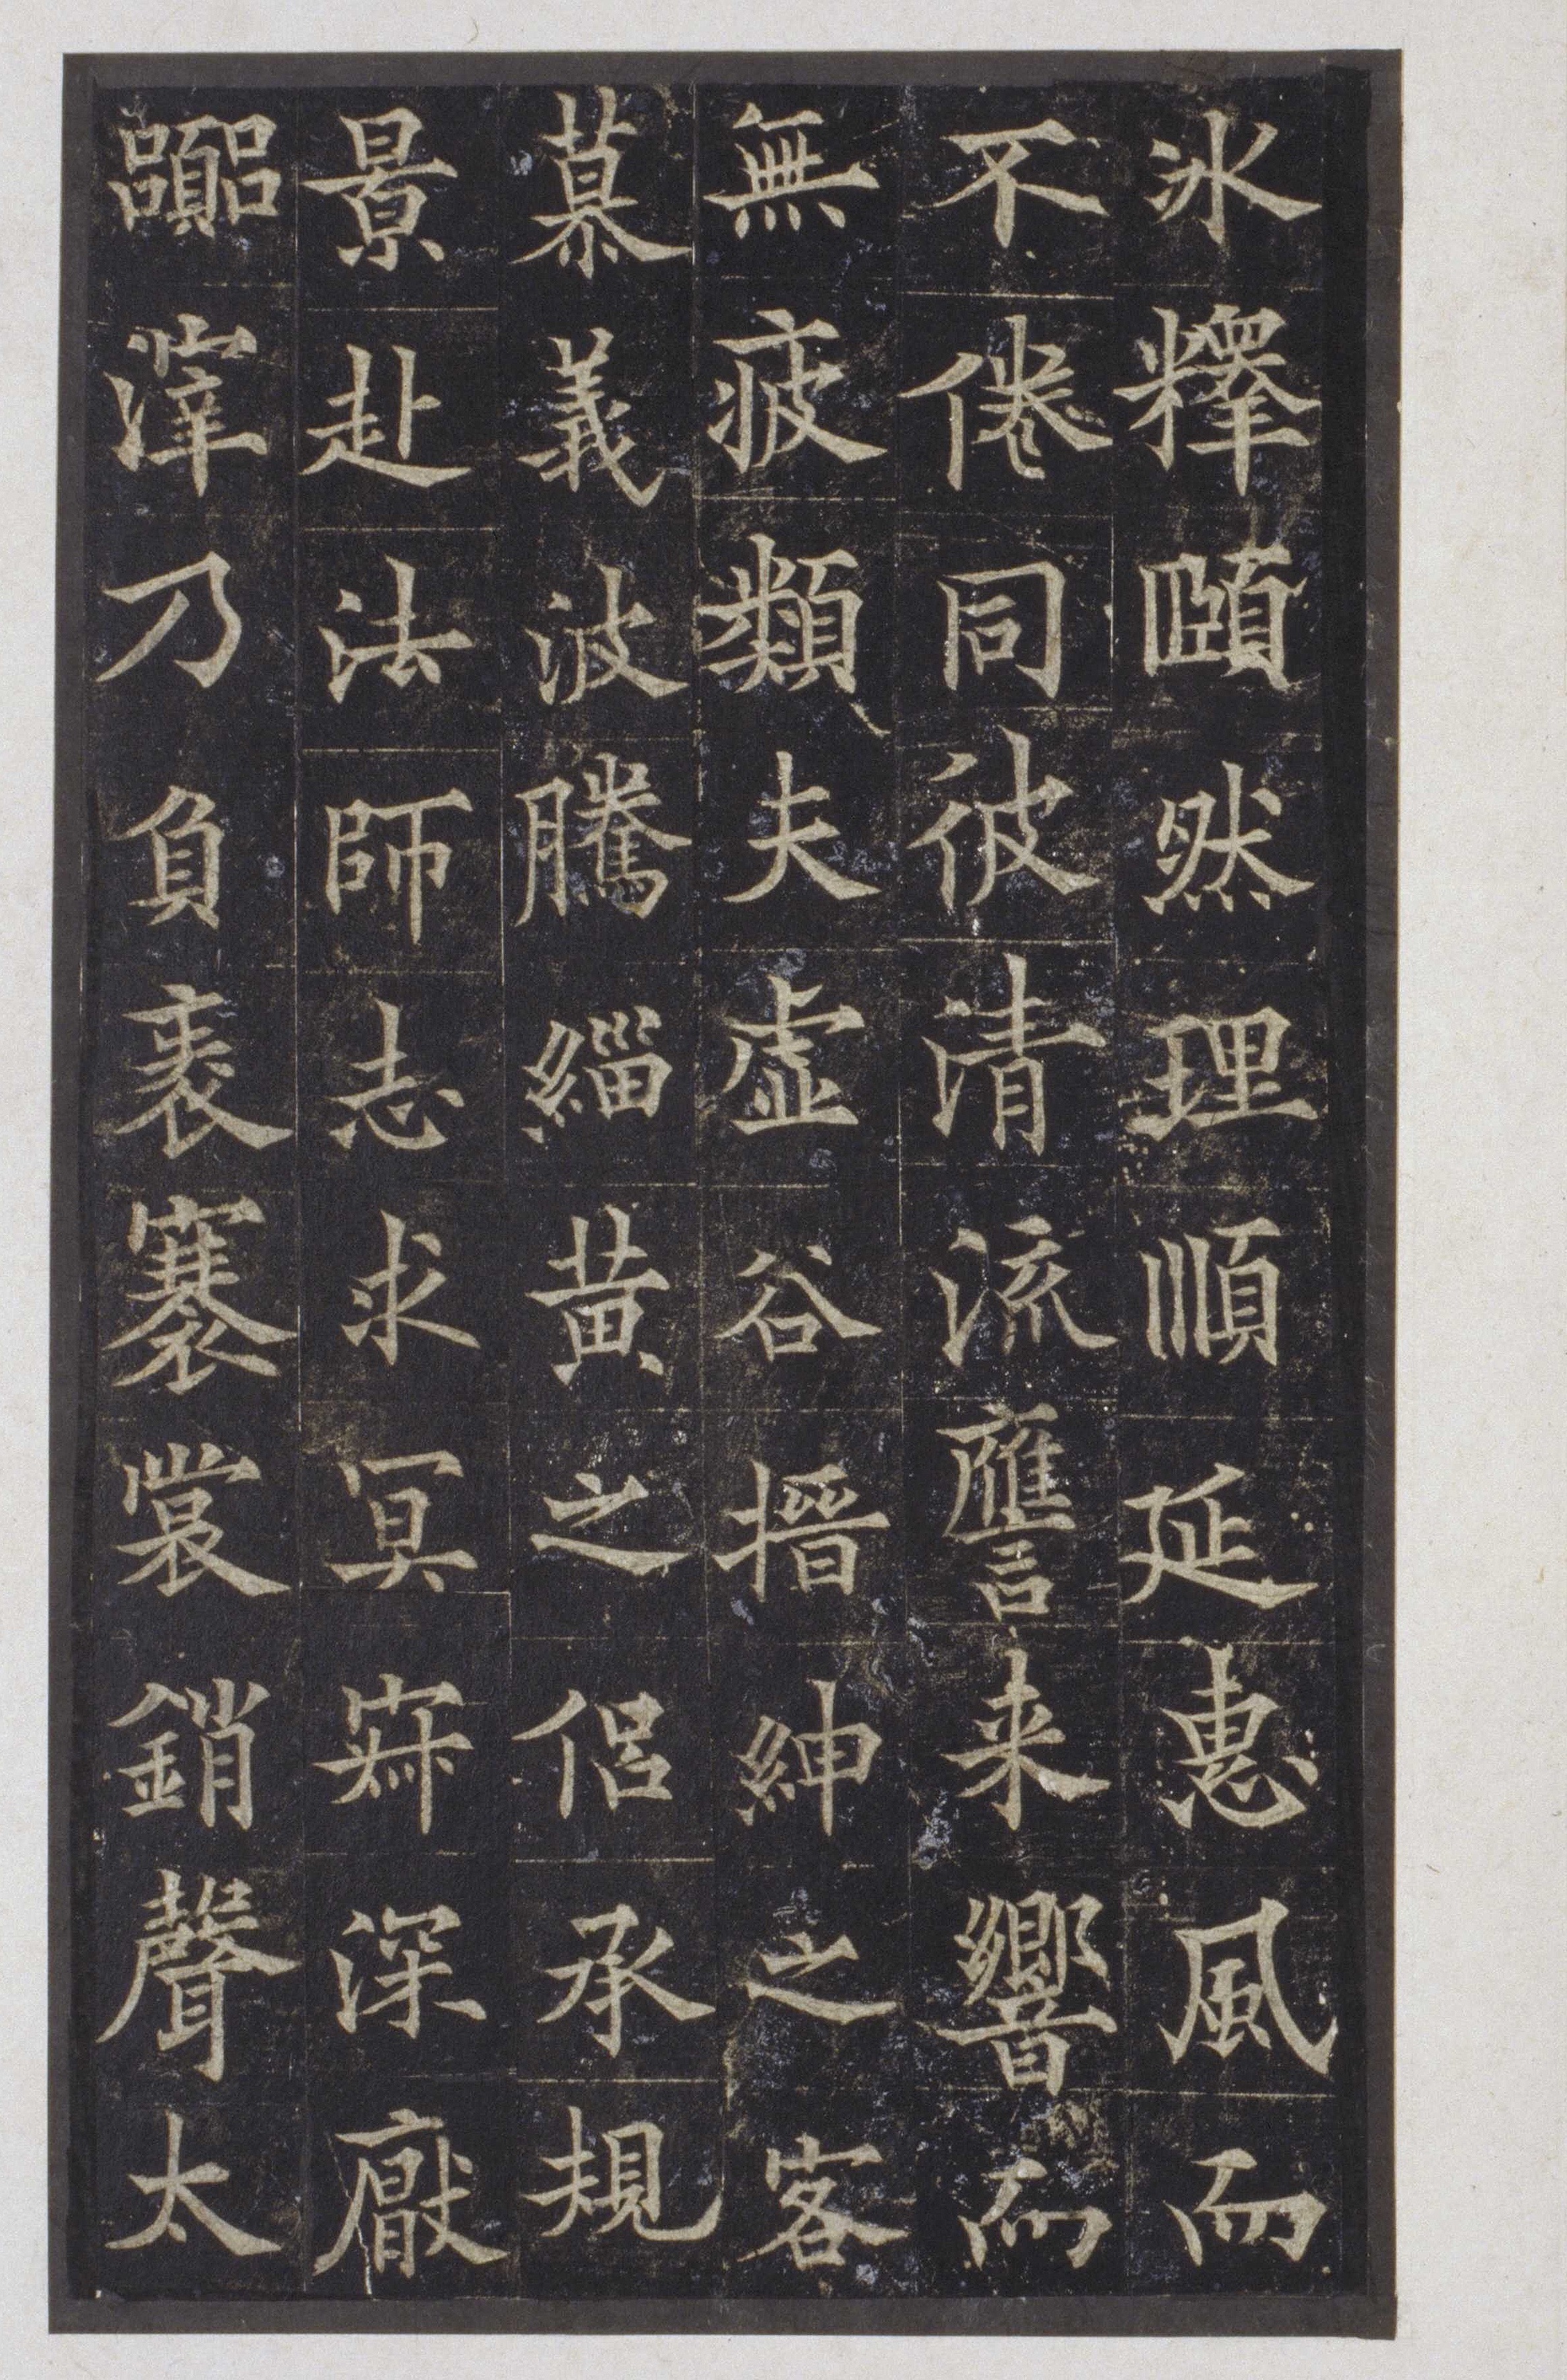 氷釋頤然理順延惠風而
不倦同彼清流譍来響而
無疲類夫虚谷搢紳之客
慕義波騰緇黄之侣承規
景赴法師志求冥寂深厭
嚻滓乃負袠褰裳銷聲太